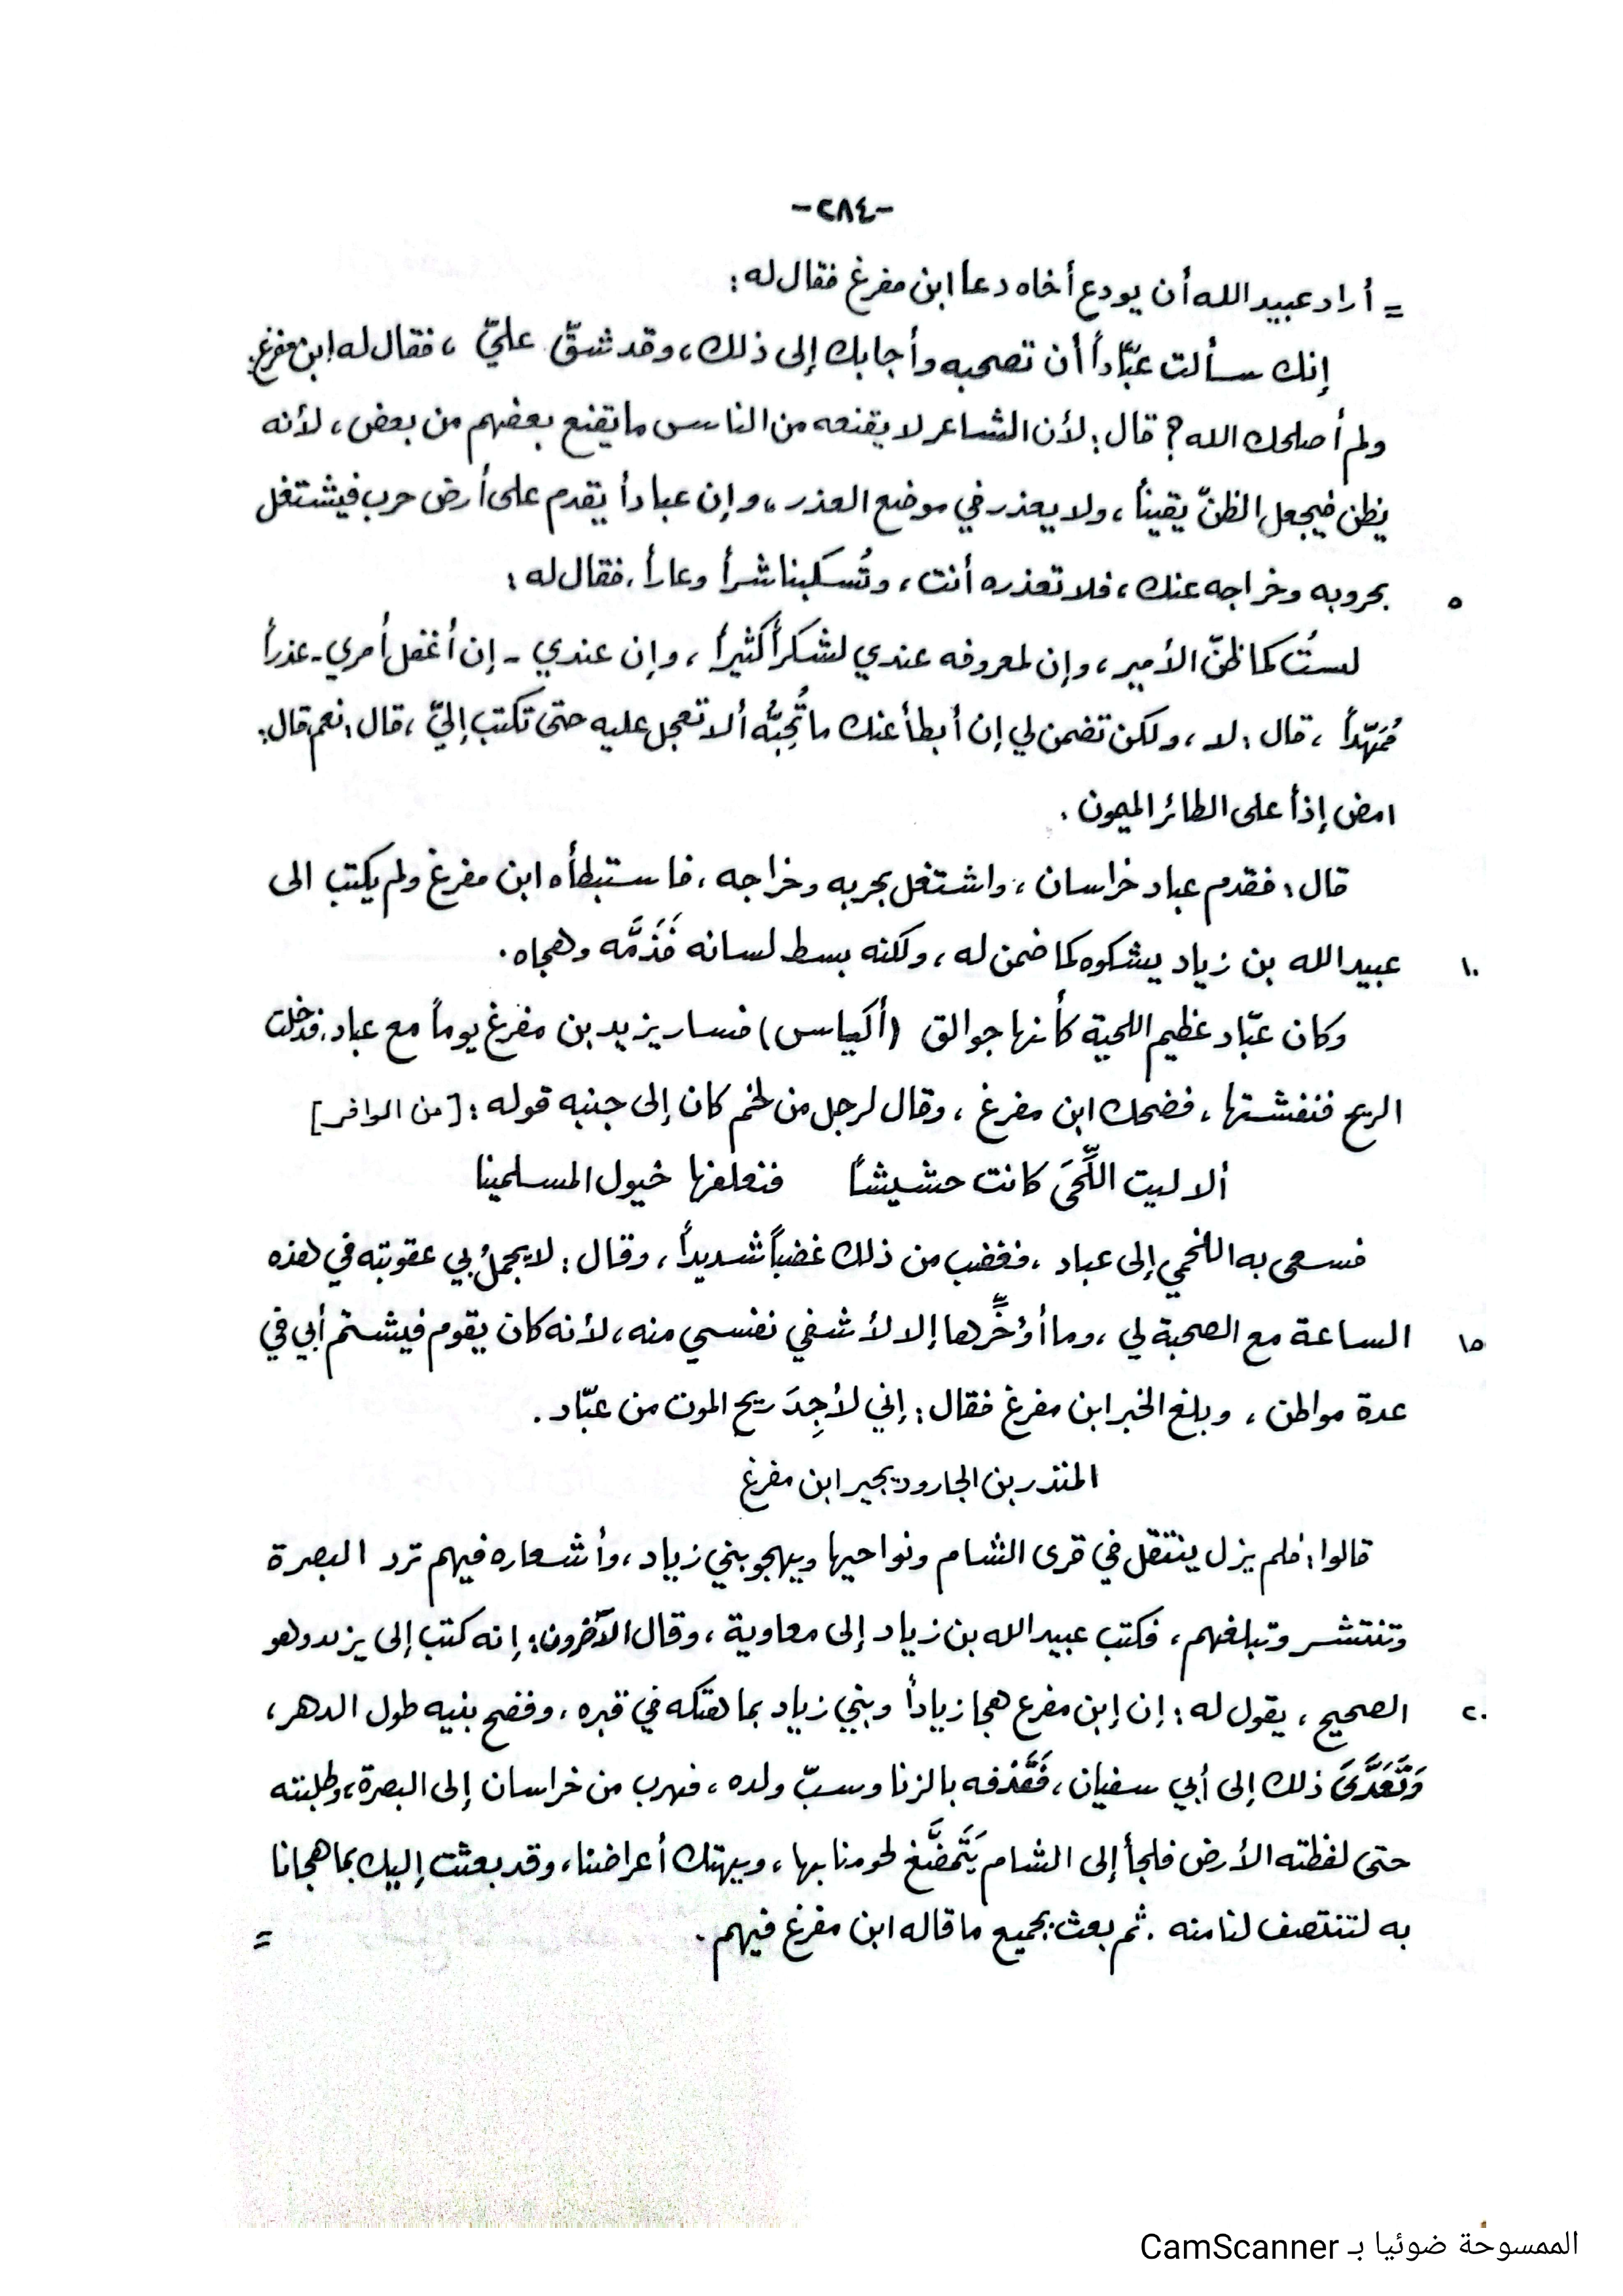 -٢٨٤-
= أراد عبيد الله أن يودع أخاه دعا ابن مفرغ فقال له :
إنك سألت عبّاداً أن تصحبه وأجابك إلى ذلك ، وقد شقّ عليّ ، فقال له ابن مفرغ :
ولم أصلحك الله ؟ قال : لأن الشاعر لا يقنعه من الناس ما يقنع بعضهم من بعض ، لأنه
يظن فيجعل الظنّ يقيناً ، ولا يعذر في موضع العذر ، وإن عباداً يقدم على أرض حرب فيشتغل
٥ بحروبه وخراجه عنك ، فلا تعذره أنت ، وتُسكبنا شراً وعاراً . فقال له :
لستُ كما ظنّ الأمير ، وإن لمعروفه عندي لشكراً كثيراً ، وإن عندي - إن أغفل أمري - عذراً
مُمَهّداً ، قال : لا ، ولكن تضمن لي إن أبطأ عنك ما تُحِبُّه ألا تعجل عليه حتى تكتب إليّ ، قال : نعم قال :
امض إذاً على الطائر الميمون .
قال : فقدم عباد خراسان ، واشتغل بحربه وخراجه ، فاستبطأه ابن مفرغ ولم يكتب الى
١٠ عبيد الله بن زياد يشكوه كما ضمن له ، ولكنه بسط لسانه فَذَمَّه وهجاه .
وكان عبّاد عظيم اللحية كأنها جوالق (أكياس) فسار يزيد بن مفرغ يوماً مع عباد . فدخلت
الريح فنفشتها ، فضحك ابن مفرغ ، وقال لرجل من لخم كان إلى جنبه قوله : [من الوافر]
ألا ليت اللِّحَى كانت حشيشاً فنعلفها خيول المسلمينا
فسعى به اللخمي إلى عباد ، فغضب من ذلك غضباً شديداً ، وقال : لا يجملُ بي عقوبته في هذه
١٥ الساعة مع الصحبة لي ، وما أؤخِّرها إلا لأشفي نفسي منه ، لأنه كان يقوم فيشتم أبي في
عدة مواطن ، وبلغ الخبر ابن مفرغ فقال : إني لأجِدَ ريح الموت من عبّاد .
المنذر بن الجارود يجير ابن مفرغ
قالوا : فلم يزل ينتقل في قرى الشام ونواحيها ويهجو بني زياد ، وأشعاره فيهم ترد البصرة
وتنتشر وتبلغهم ، فكتب عبيد الله بن زياد إلى معاوية ، وقال الآخرون : إنه كتب إلى يزيد وهو
٢٠ الصحيح ، يقول له : إن إبن مفرغ هجا زياداً وبني زياد بما هتكه في قبره ، وفضح بنيه طول الدهر ،
وَتَعَدَّىَ ذلك إلى أبي سفيان ، فَقَذفه بالزنا وسبّ ولده ، فهرب من خراسان إلى البصرة ، وطلبته
حتى لفظته الأرض فلجأ إلى الشام يَتَمضَّغ لحومنا بها ، ويهتك أعراضنا ، وقد بعثت إليك بما هجانا
به لتنتصف لنا منه . ثم بعث بجميع ما قاله ابن مفرغ فيهم . =
الممسوحة ضوئيا بـ CamScanner